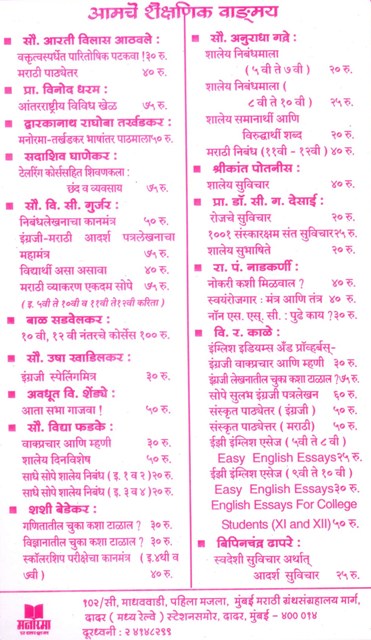 आमचे शैक्षणिक वाङ्मय
सौ. आरती विलास आठवले :
वक्तृत्वस्पर्धेत पारितोषिक पटकवा !३० रु.
मराठी पाठ्येतर ४० रु.
प्रा. विनोद धरम :
आंतरराष्ट्रीय विविध खेळ ७५ रु.
द्वारकानाथ राघोबा तर्खडकर :
मनोरमा-तर्खडकर भाषांतर पाठमाला५० रु.
सदाशिव घाणेकर :
टेलरिंग कोर्ससहित शिवणकला :
छंद व व्यवसाय ७५ रु.
सौ. वि. सी. गुर्जर :
निबंधलेखनाचा कानमंत्र ५० रु.
इंग्रजी-मराठी आदर्श पत्रलेखनाचा
महामंत्र ७५ रु.
विद्यार्थी असा असावा ४० रु.
मराठी व्याकरण एकदम सोपे ७५ रु.
( इ. ५वी ते १०वी व ११वी ते१२वी करिता )
बाळ सडवेलकर :
१० वी, १२ वी नंतरचे कोर्सेस १०० रु.
सौ. उषा खाडिलकर :
इंग्रजी स्पेलिंगमित्र ३० रु.
अवधूत वि. शेंड्ये :
आता सभा गाजवा ! ५० रु.
सौ. विद्या फडके :
वाक्प्रचार आणि म्हणी ३० रु.
शालेय दिनविशेष ५० रु.
साधे सोपे शालेय निबंध ( इ. १ व २ ) २० रु.
साधे सोपे शालेय निबंध ( इ. ३ व ४ ) २० रु.
शशी बेडेकर :
गणितातील चुका कशा टाळाल ? ३० रु.
विज्ञानातील चुका कशा टाळाल ? ३० रु.
स्कॉलरशिप परीक्षेचा कानमंत्र ( इ.४थी व
७वी ) ४० रु.
सौ. अनुराधा गद्रे :
शालेय निबंधमाला
( ५ वी ते ७ वी ) २० रु.
शालेय निबंधमाला (
८ वी ते १० वी ) २५ रु.
शालेय समानार्थी आणि
विरुद्धार्थी शब्द २० रु.
मराठी निबंध (११वी - १२वी ) ४० रु.
श्रीकांत पोतनीस :
शालेय सुविचार ४० रु.
प्रा. डॉ. सी. ग. देसाई :
रोजचे सुविचार २० रु.
१००१ संस्कारक्षम संत सुविचार२५ रु.
शालेय सुभाषिते २० रु.
रा. पं. नाडकर्णी :
नोकरी कशी मिळवाल ? ४० रु.
स्वयंरोजगार : मंत्र आणि तंत्र ४० रु.
नॉन एस. एस. सी. : पुढे काय ?३० रु.
वि. र. काळे :
इंग्लिश इडियम्स अँड प्रॉव्हर्बस्-
इंग्रजी वाक्प्रचार आणि म्हणी ३० रु.
इंग्रजी लेखनातील चुका कशा टाळाल ?७५ रु.
सोपे सुलभ इंग्रजी पत्रलेखन ६० रु.
संस्कृत पाठ्येतर ( इंग्रजी ) ५० रु.
संस्कृत पाठ्येत्तर ( मराठी ) ५० रु.
ईझी इंग्लिश एसेज ( ५वी ते ८वी )
Easy English Essays२५ रु.
ईझी इंग्लिश एसेज ( ९वी ते १० वी )
Easy English Essays३० रु.
English Essays For College
Students (XI and XII) ५० रु.
बिपिनचंद्र ढापरे :
स्वदेशी सुविचार अर्थात्
आदर्श सुविचार २५ रु.
मनोरमा
१०२/सी, माधववाडी, पहिला मजला, मुंबई मराठी ग्रंथसंग्रहालय मार्ग,
दादर ( मध्य रेल्वे ) स्टेशनसमोर, दादर, मुंबई - ४०० ०१४
दूरध्वनी : २ ४१४२८९९